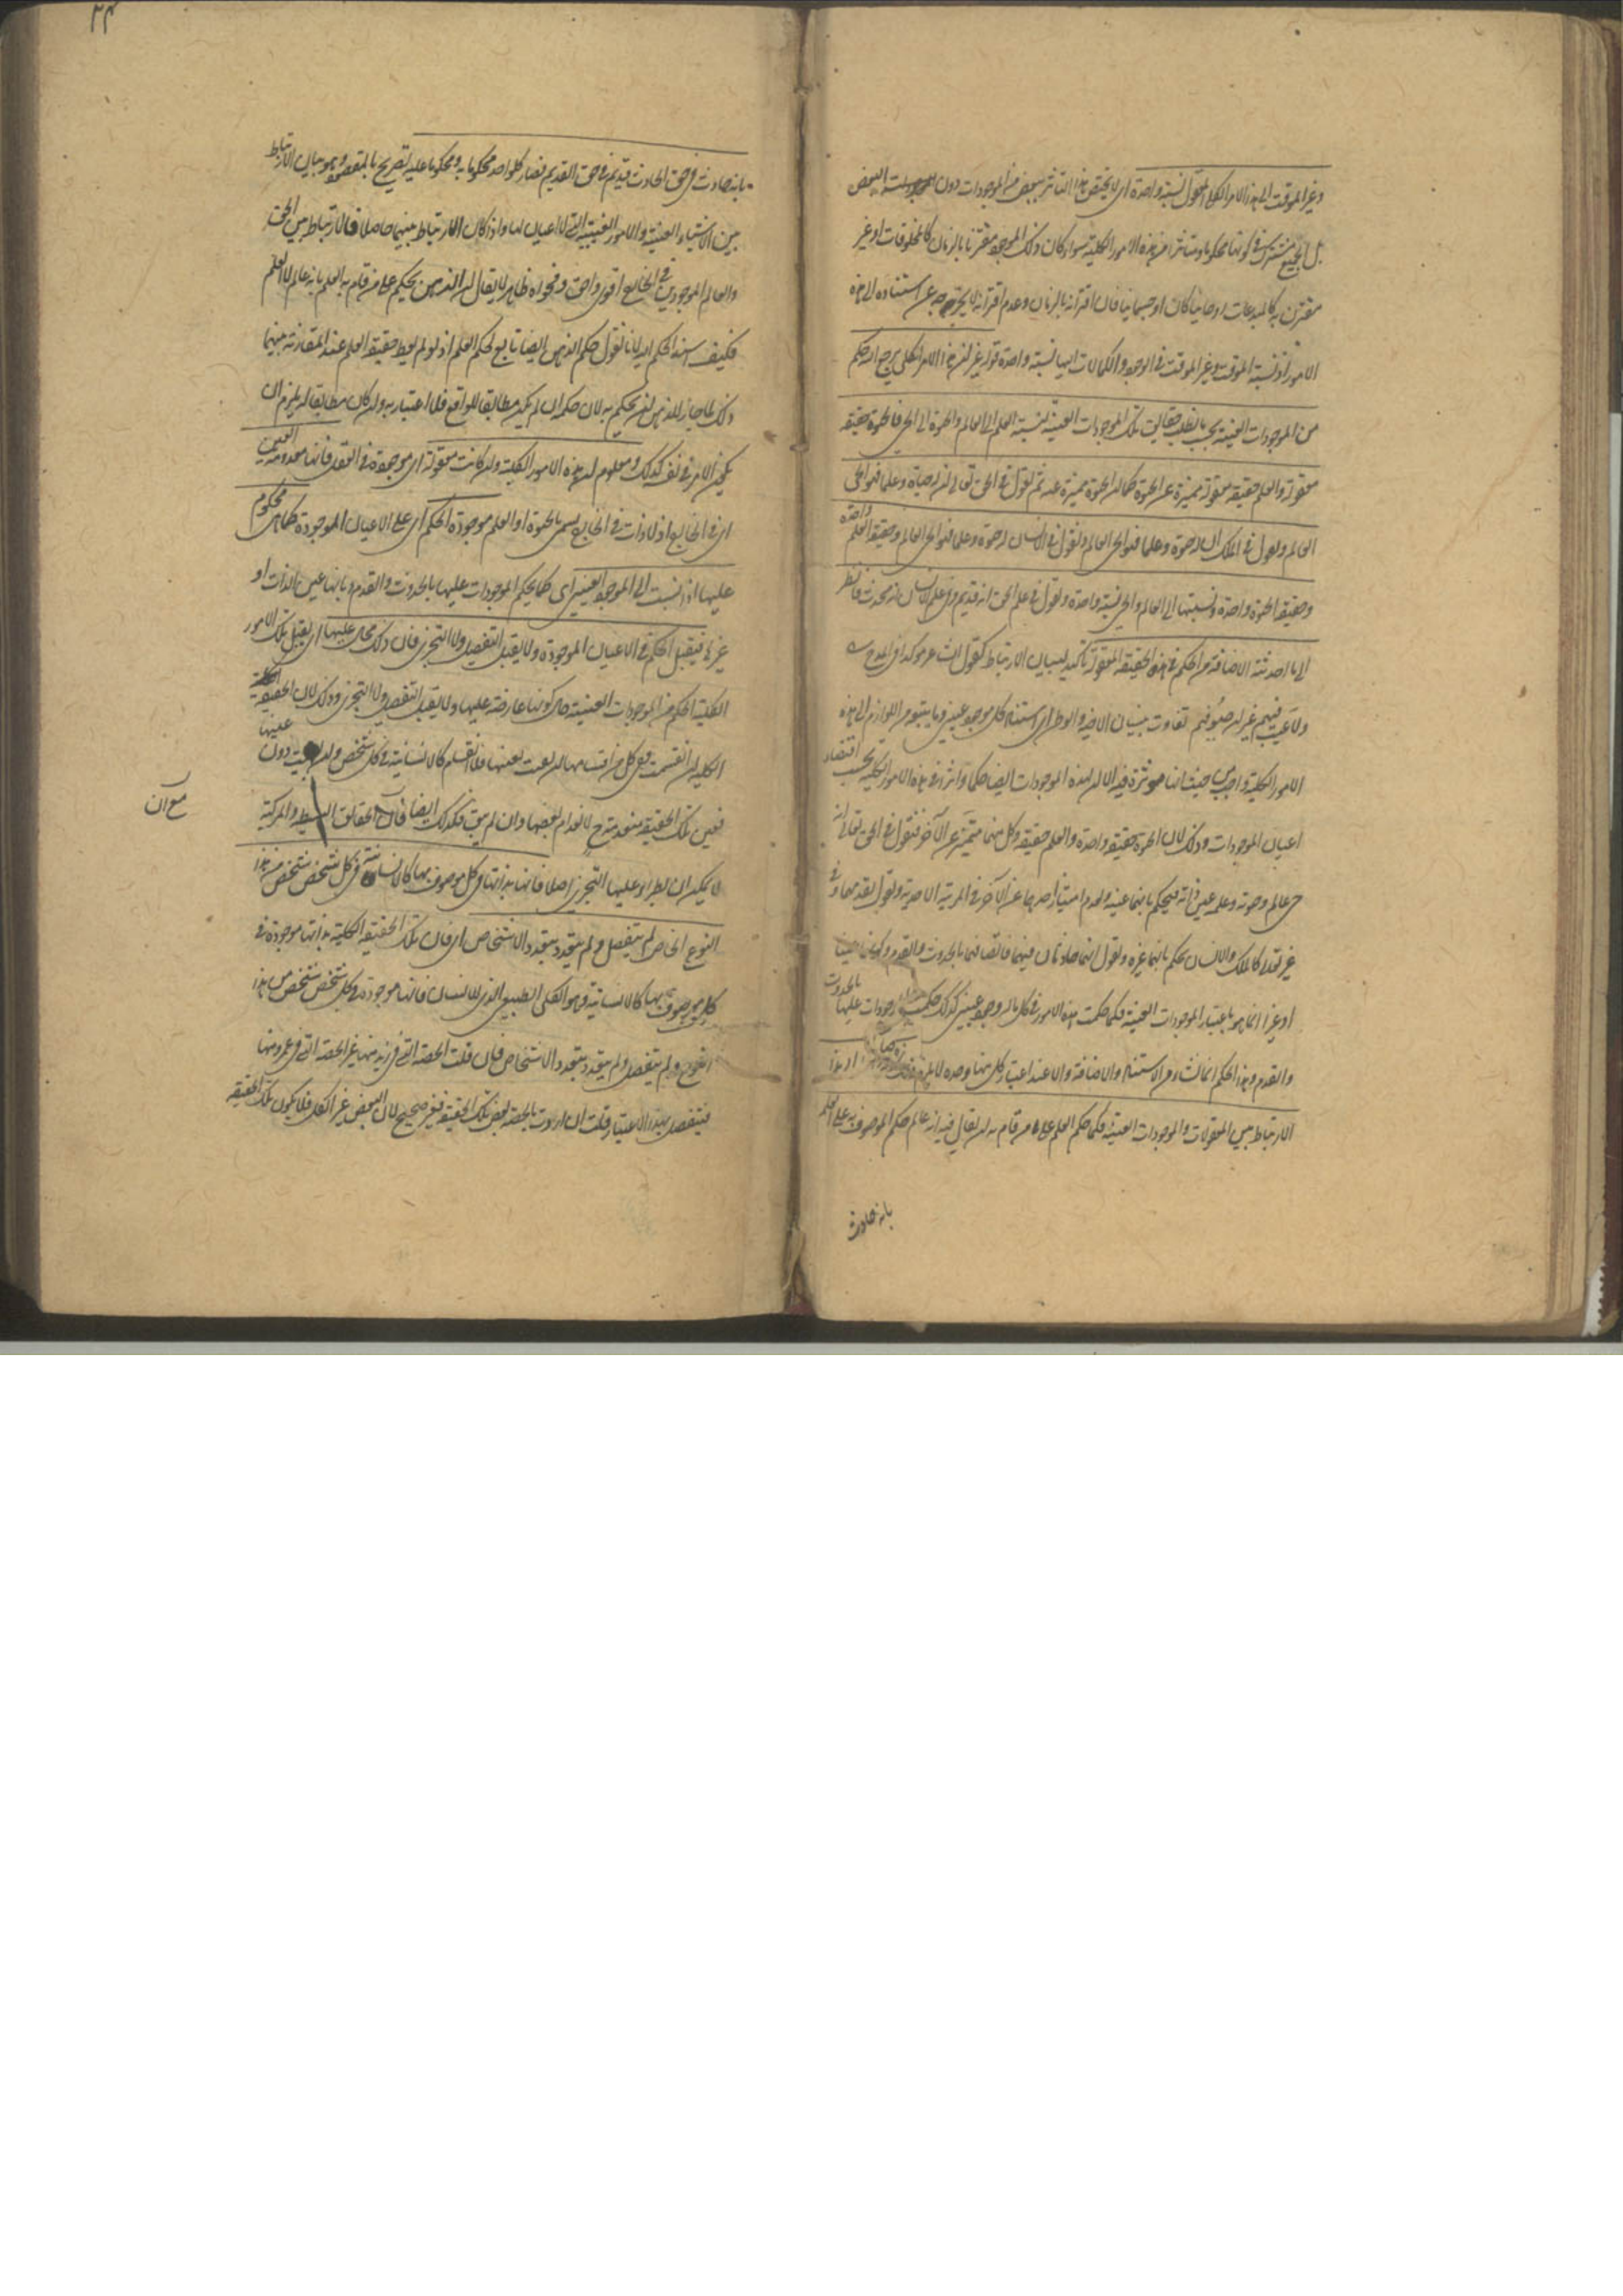 وغير الموقت الى هذا الامر الكلي المعقول نسبة واحدة اى لا يختص هذا التأثر ببعض من الموجودات دون البعض
بل الجميع مشترك في كونها محكوما ومتاثرا من هذه الامور الكلية سواء كان ذلك الموجود مقترنا بالزمان كالمخلوقات او غير
مقترن به كالمبدعات روحانيا كان او جسمانيا فان اقترانه بالزمان وعدم اقترانه لا يخرجه عن استناده الى هذه
الامور اذ نسبة الموقت وغير الموقت في الوجود والكمالات اليها نسبة واحدة قوله غير ان هذا الامر الكلي يرجع اليه حكم
من الموجودات العينية بحسب ما تطلبه حقايق تلك الموجودات العينية كنسبة العلم الى العالم والحيوة الى الحي فالحيوة حقيقة
معقولة والعلم حقيقة معقولة متميزة عن الحيوة كما ان الحيوة متميزة عنه ثم نقول في الحق تعالى ان له حياة وعلما فهو الحي
العالم ونقول في الملك ان له حيوة وعلما فهو الحي العالم ونقول في الانسان ان له حيوة وعلما فهو الحي العالم وحقيقة العلم واحدة
وحقيقة الحيوة واحدة ونسبتها الى العالم والحي نسبة واحدة ونقول في علم الحق انه قديم وفي علم الانسان انه محدث فانظر
الى ما احدثته الاضافة من الحكم في هذه الحقيقة المعقولة تاكيد لبيان الارتباط كقول الشاعر موكدا في المدح
ولا عيب فيهم غير ان ضيوفهم تعاب بنسيان الاحبة والوطن اى استناد كل موجود عيني وما يتبعه من اللوازم الى هذه
الامور الكلية واجب من حيث انها موثرة فيه الا ان لهذه الموجودات ايضا حكما واثرا في هذه الامور الكلية بحسب اقتضاء
اعيان الموجودات وذلك لان الحيوة حقيقة واحدة والعلم حقيقة وكل منهما متميز عن الآخر فنقول في الحق تعالى انه
حي عالم وحيوته وعلمه عين ذاته فيحكم بانهما عينه ولعدم امتياز احدهما عن الآخر في المرتبة الاحدية ونقول بقدمهما وفي
غير تعالى كالملك والانسان يحكم بانهما غيره ونقول انهما حادثان فيهما فاتصافهما بالحدوث والقدم وكونهما عينا
او غيرا انما هو باعتبار الموجودات العينية فكما حكمت هذه الامور في كل ما له وجود عيني كذلك حكمت الموجودات عليها بالحدوث
والقدم وهذا الحكم انما نشاء من الاستناد والاضافة والا عند اعتبار كل منهما وحده لا يلزم ذلك
الارتباط بين المعقولات والموجودات العينية فكما حكم العلم على من قام به ان يقال فيه انه عالم حكم الموصوف به على العلم
بانه حادث
٢٤
بانه حادث في حق الحادث قديم في حق القديم فصار كل واحد محكوما به ومحكوما عليه تصريح بالمقصود وهو بيان الارتباط
بين الاشياء العينية والامور الغيبية التي لا اعيان لها واذا كان الارتباط بينهما حاصلا فالارتباط بين الحق
والعالم الموجودين في الخارج اقوى واحق وفحواه ظاهر لا يقال ان الذهن يحكم على من قام به العلم بانه عالم لا العلم
فكيف اسند الحكم اليه لانا نقول حكم الذهن ايضا تابع لحكم العلم اذ لو لم يعط حقيقة العلم عند المقارنة بينهما
ذلك لما جاز للذهن ان يحكم به لان حكمه ان لم يكن مطابقا للواقع فلا اعتبار به وان كان مطابقا له يلزم ان
يكون الامر في نفسه كذلك ومعلوم ان هذه الامور الكلية وان كانت معقولة اى موجودة في العقل فانها معدومة العين
اى في الخارج اذ لا ذات في الخارج يسمى بالحيوة او العلم موجودة الحكم اى على الاعيان الموجودة كما هي محكوم
عليها اذا نسبت الى الموجود العيني اى كما يحكم الموجودات عليها بالحدوث والقدم وبانها عين الذات او
غيرها فيقبل الحكم في الاعيان الموجودة ولا يقبل التفصيل ولا التجزي فان ذلك محال عليها اى يقبل تلك الامور
الكلية الحكم من الموجودات العينية حال كونها عارضة عليها ولا يقبل التفصيل ولا التجزي وذلك لان الحقيقة الكلية
الكلية ان انقسمت ففي كل من اقسامها ان بقيت بعينها فلا انقسام كالانسانية في كل شخص وان بقيت دون عينها
فعين تلك الحقيقة منعدمة ح لانعدام بعضها وان لم يبق فكذلك ايضا فان الحقائق البسيطة والمركبة
مع ان
لا يمكن ان يطراء عليها التجزي اصلا فانها بذاتها في كل موصوف بها كالانسانية في كل شخص شخص من هذا
النوع الخاص لم يتفصل ولم يتعدد بتعدد الاشخاص اى فان تلك الحقيقة الكلية بذاتها موجودة في
كل موصوف بها كالانسانية وهو الكلي الطبيعي الذي للانسان فانها موجودة في كل شخص شخص من هذا
النوع ولم يتفصل ولم يتعدد بتعدد الاشخاص فان قلت الحصة التي في زيد منها غير الحصة التي في عمرو منها
فيتفصل بهذا الاعتبار قلت ان اردت بالحصة بعض تلك الحقيقة فغير صحيح لان البعض غير الكل فلا يكون تلك الحقيقة